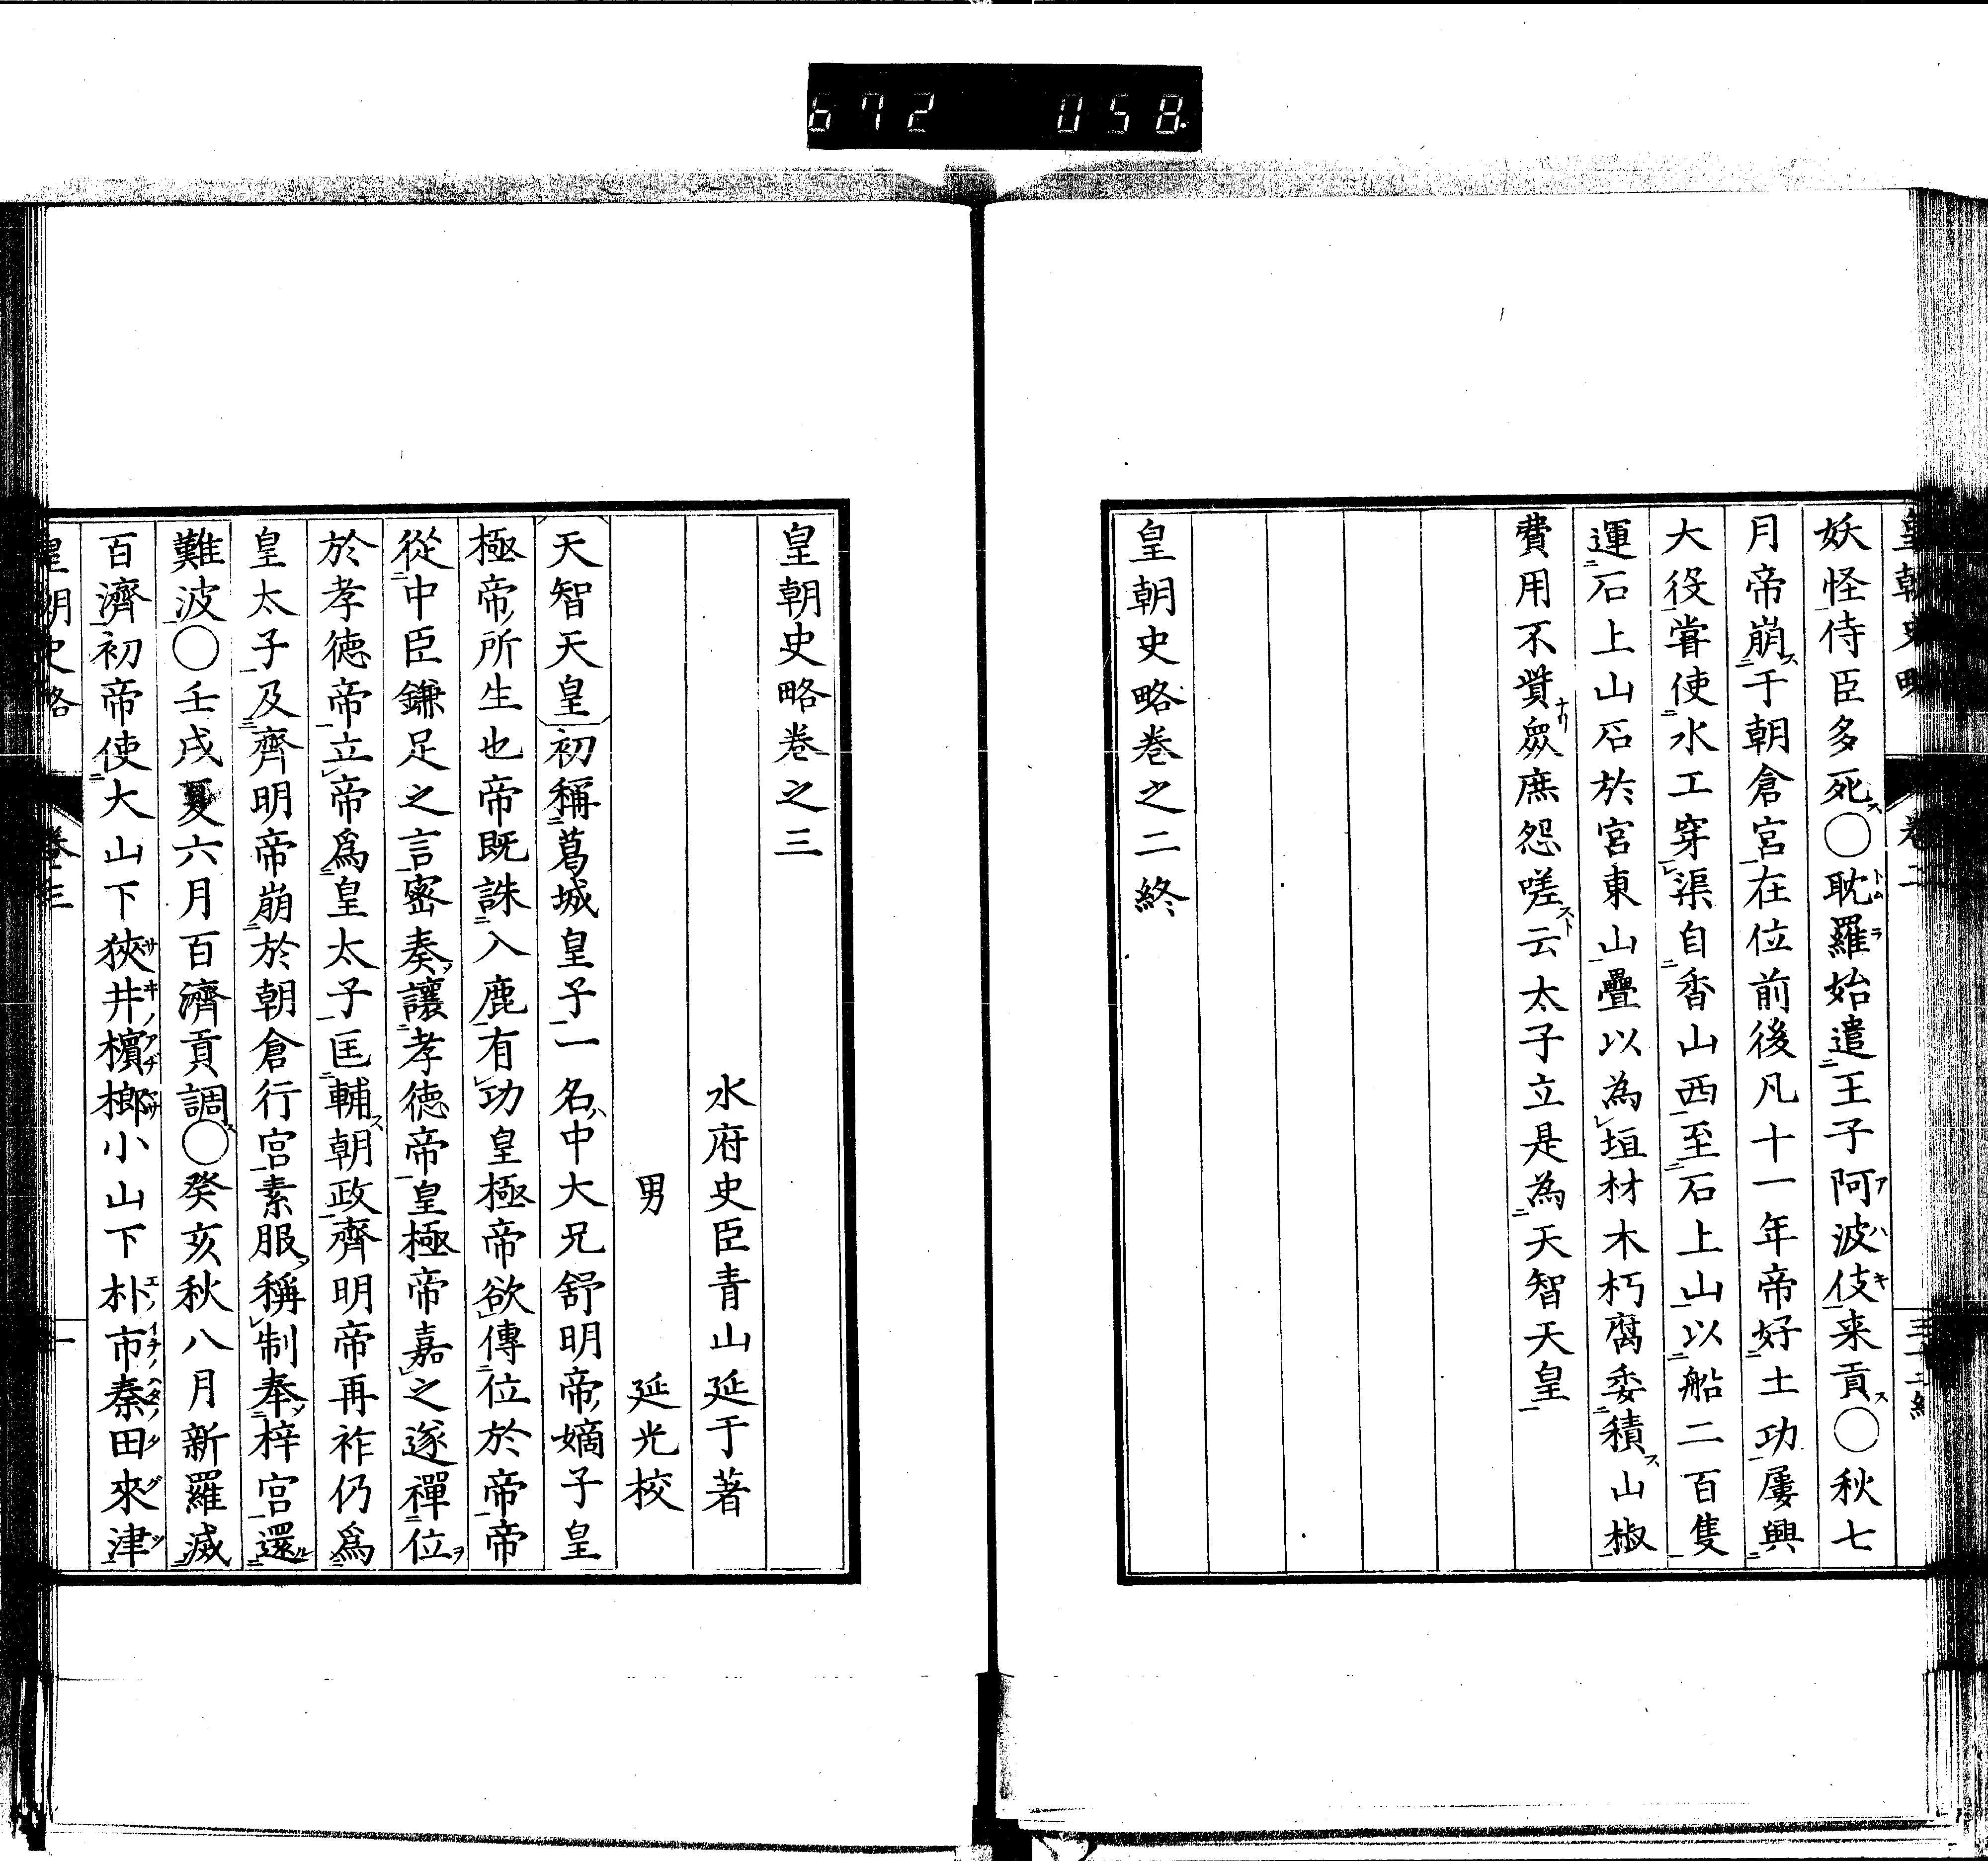 672 058
皇朝史略 卷二
妖怪侍臣多死○耽羅始遣王子阿波伎来貢○秋七
月帝崩于朝倉宮在位前後凡十一年帝好土功屢興
大役甞使水工穿渠自香山西至石上山以船二百隻
運石上山石於宮東山疊以為垣材木朽腐委積山椒
費用不貲衆庶怨嗟云太子立是為天智天皇
皇朝史略卷之二終
皇朝史略卷之三
水府史臣青山延于著
男 延光校
天智天皇初稱葛城皇子一名中大兄舒明帝嫡子皇
極帝所生也帝既誅入鹿有功皇極帝欲傳位於帝帝
從中臣鎌足之言密奏讓孝徳帝皇極帝嘉之遂禪位
於孝徳帝立帝爲皇太子匡輔朝政齊明帝再祚仍爲
皇太子及齊明帝崩於朝倉行宮素服稱制奉梓宮還
難波○壬戌夏六月百濟貢調○癸亥秋八月新羅滅
百濟初帝使大山下狹井檳榔小山下朴市秦田來津
皇朝史略 卷三 一